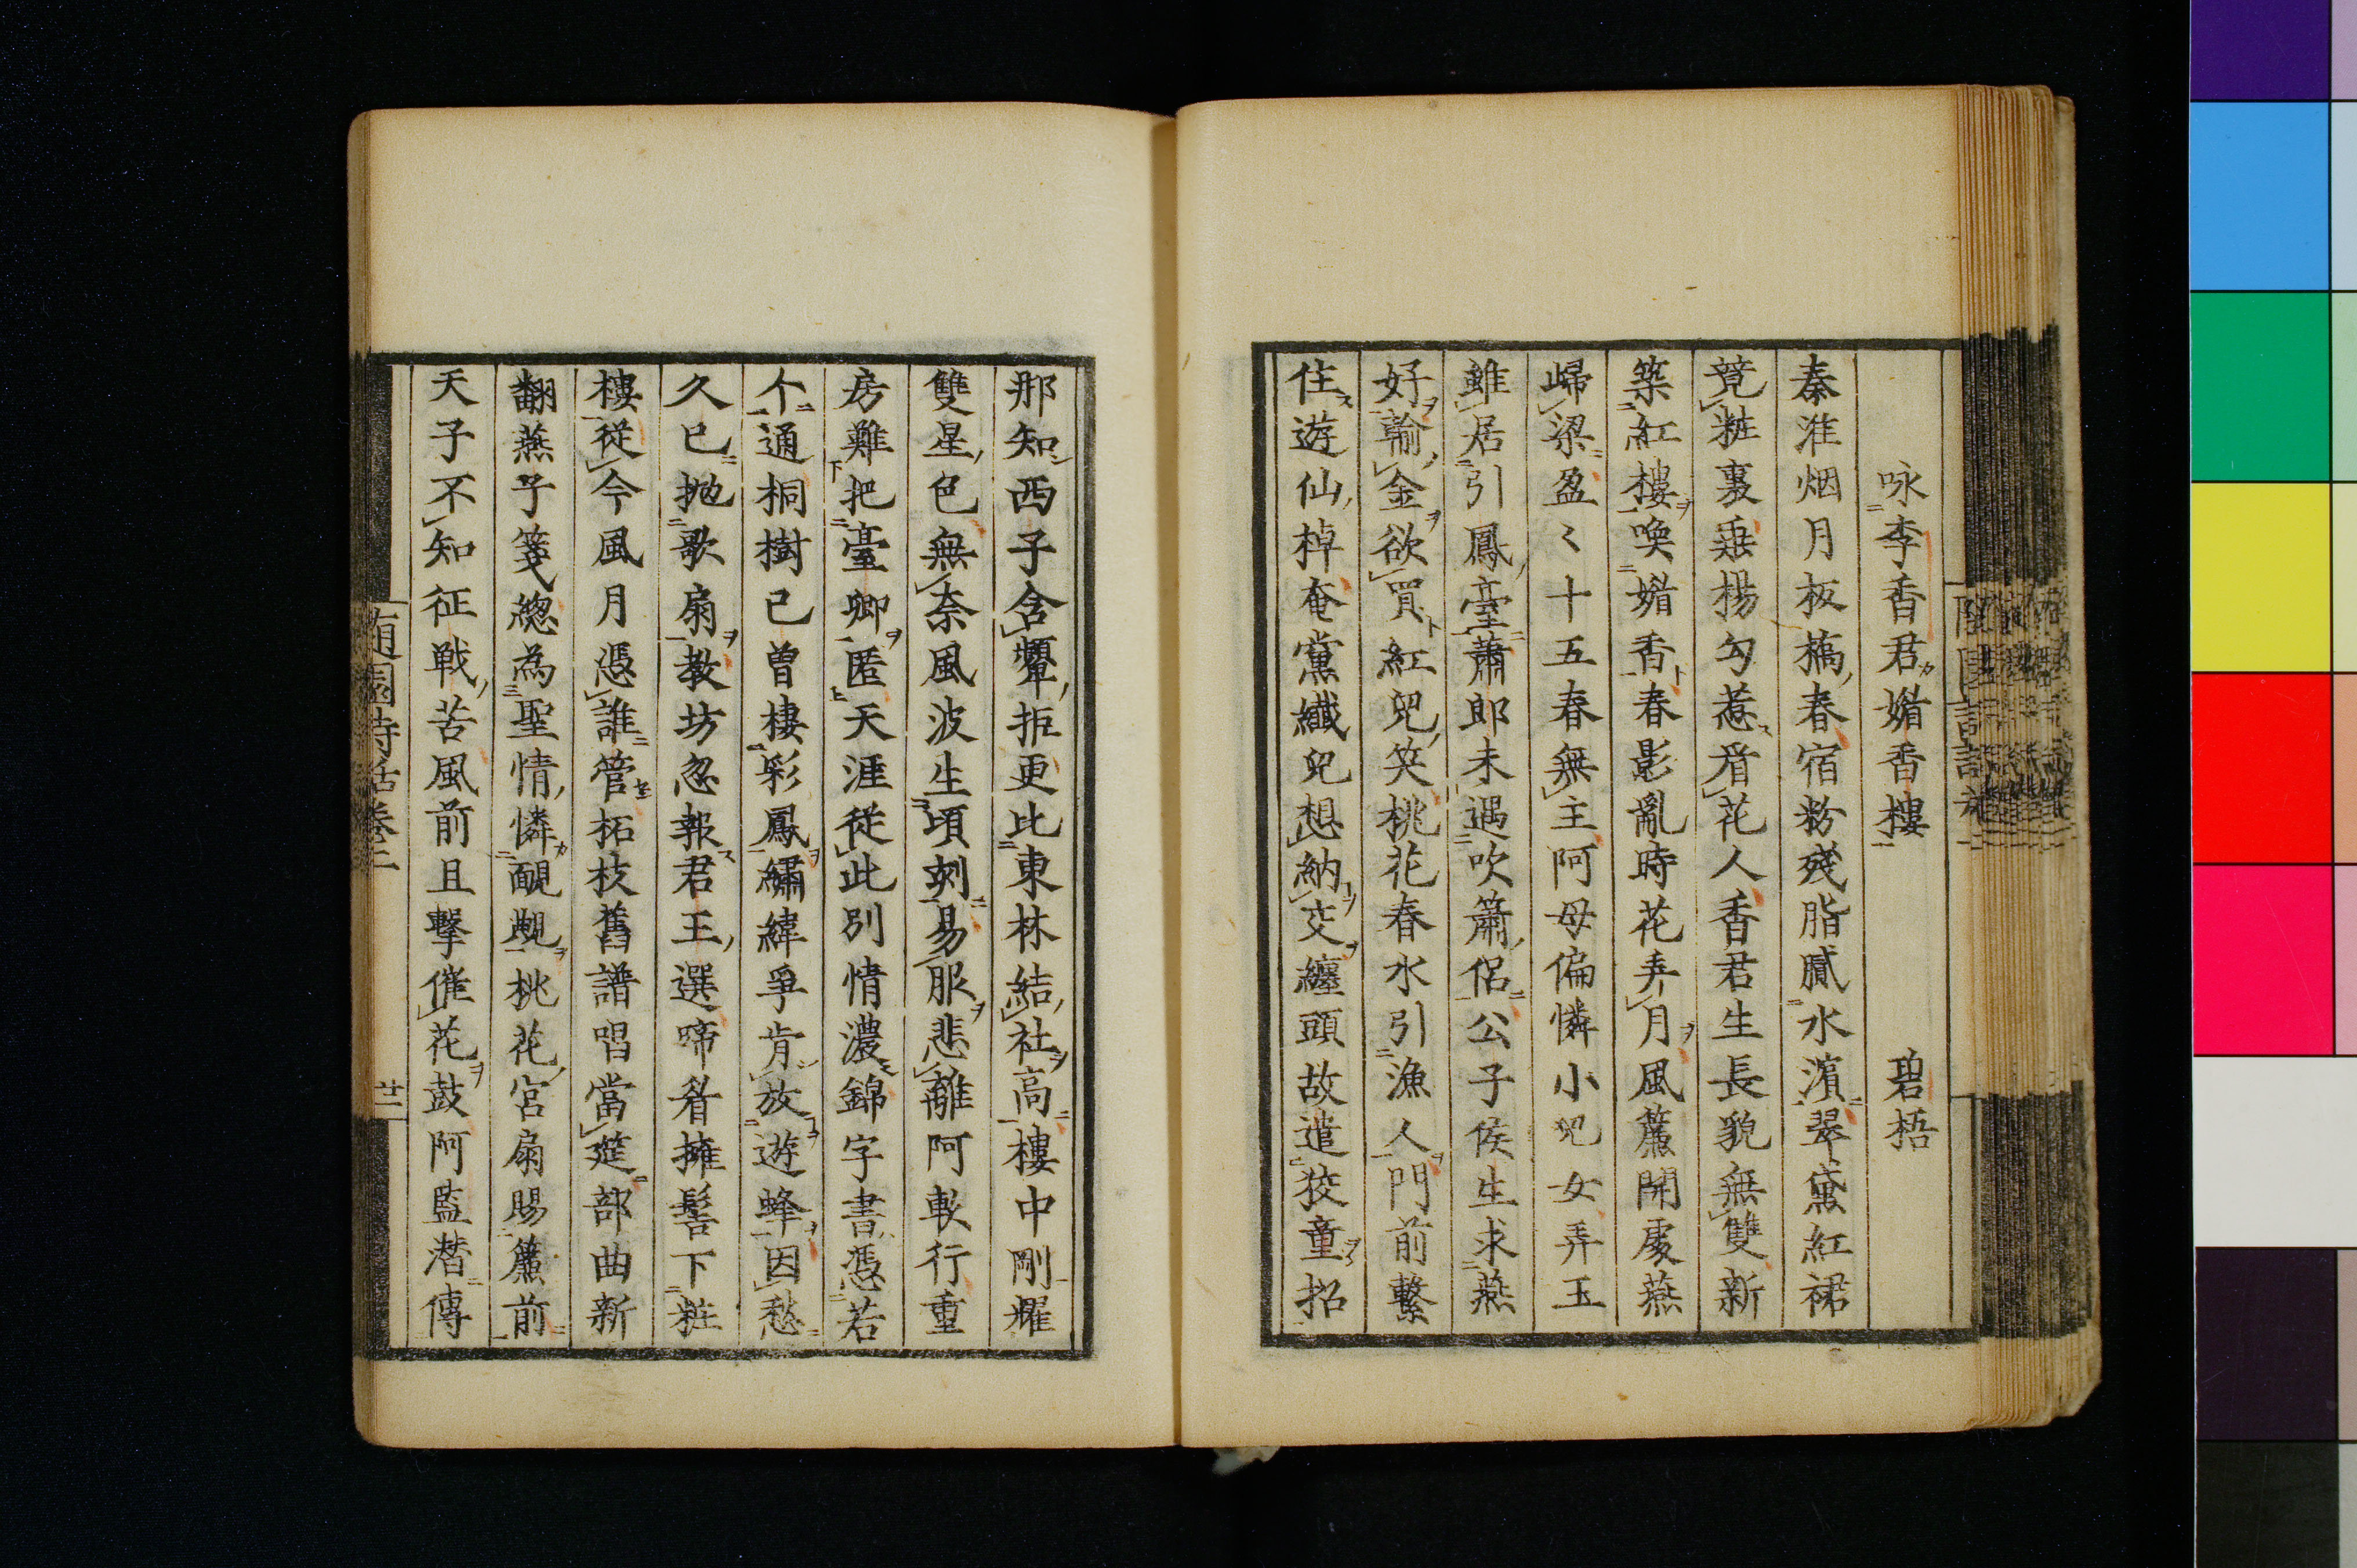 咏李香君媚香樓　　碧梧
秦淮烟月板橋春宿粉殘脂膩水濱翠黛紅裙
竟粧裹垂楊勾惹看花人香君生長貌無雙新
築紅樓喚媚香春影亂時花弄月風簾開處燕
歸梁盈〻十五春無主阿母偏憐小兒女弄玉
雖居引鳳臺蕭郎未遇吹簫侶公子侯生求燕
好輸金欲買紅兒笑桃花春水引漁人門前繫
住遊仙棹奄黨纖兒想納交纏頭故遣狡童招
那知西子含顰拒更比東林結社高樓中剛耀
雙星色無奈風波生頃刻易服悲離阿軟行重
房難把臺卿匿天涯從此別情濃錦字書憑若
个通桐樹已曾棲彩鳳繡緯爭肯放遊蜂因愁
久已抛歌扇教坊忽報君王選啼眉擁髻下粧
樓從今風月憑誰管柘枝舊譜唱當筵部曲新
翻燕子箋總為聖情憐靦覥桃花宮扇賜簾前
天子不知征戰苦風前且擊催花鼓阿監潜傳
随園詩話卷二
廿二